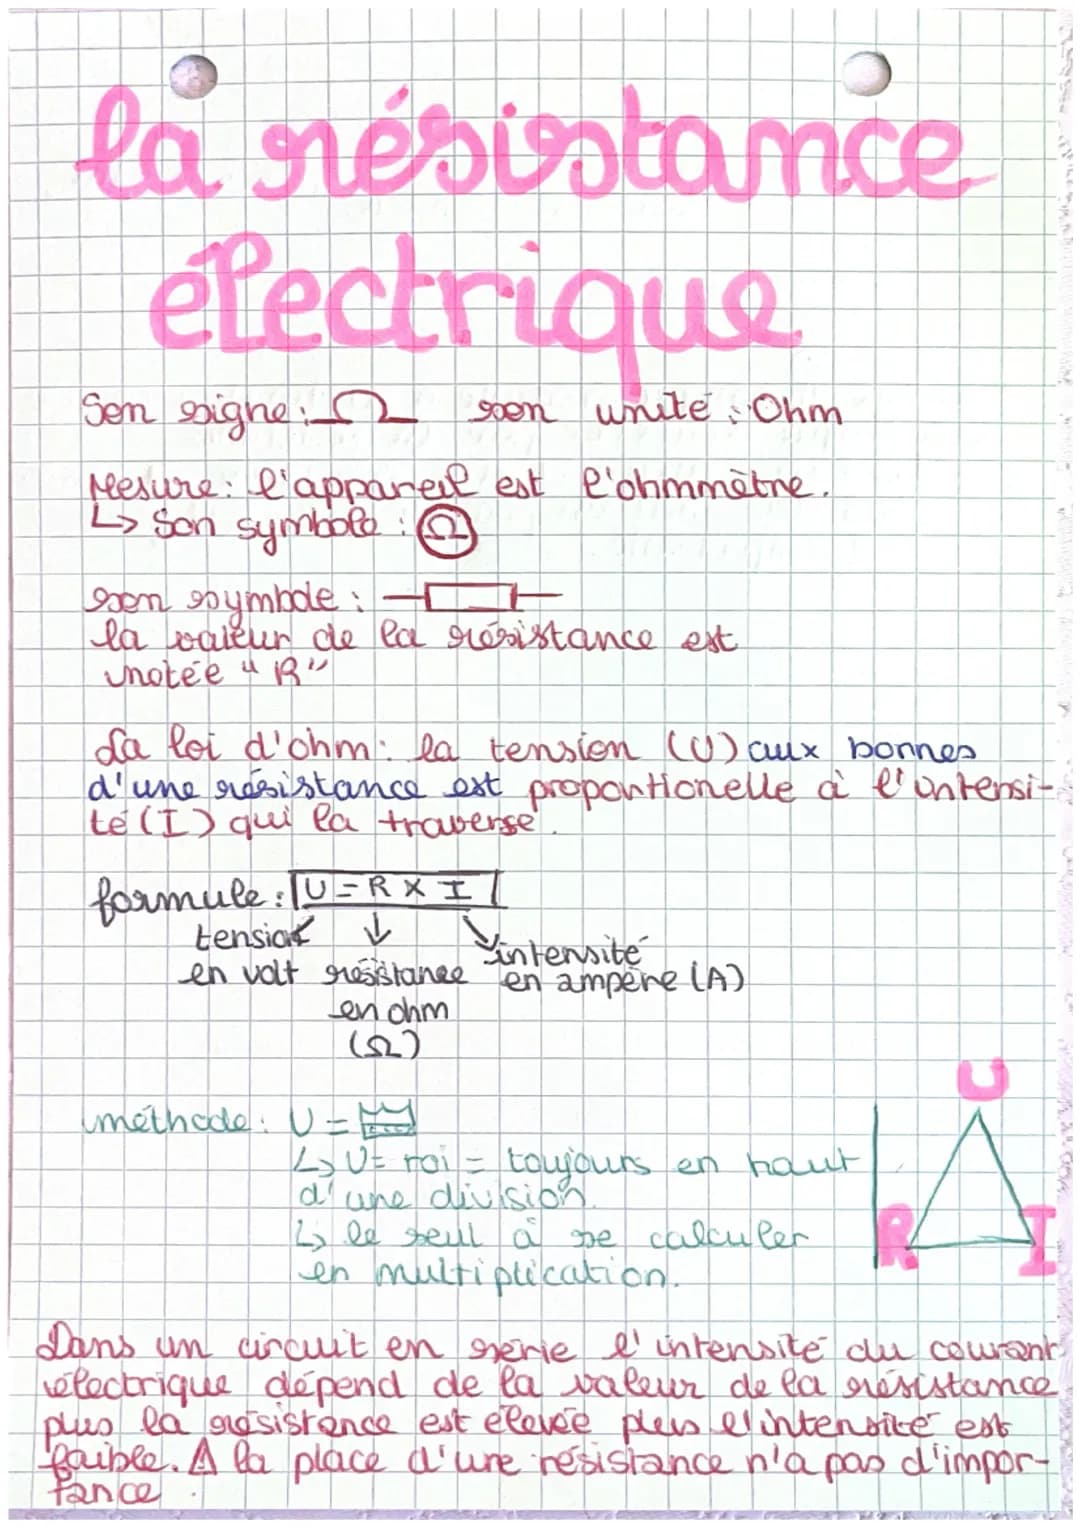 la résistance
électrique
Son signe : Ω son unité : Ohm
Mesure : l'appareil est l'ohmmètre.
↳ Son symbole : Ω
son symbole :
la valeur de la résistance est
notée "R"
La loi d'ohm : la tension (U) aux bornes
d'une résistance est proportionelle à l'intensi-
té (I) qui la traverse.
formule : U = R × I
tension ↓ intensité
en volt résistance en ampère (A)
en ohm
(Ω)
U
méthode : U =
↳ U = roi = toujours en haut
d'une division.
R I
↳ le seul à se calculer
en multiplication.
Dans un circuit en série l'intensité du courant
électrique dépend de la valeur de la résistance
plus la résistance est élevée plus l'intensité est
faible. ⚠ la place d'une résistance n'a pas d'impor-
tance.